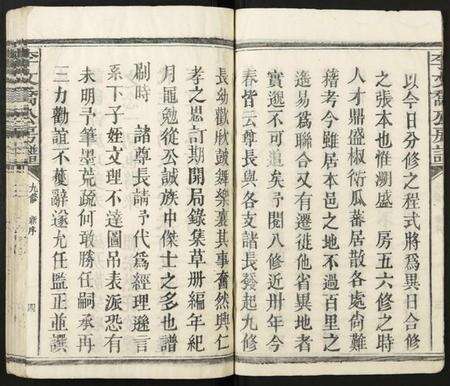 以今日分修之程式將為異日合修
之張本也惟溯盛　房五六修之時
人才鼎盛椒衍瓜蕃居散各處尙難
稽考今雖居本邑之地不過百里之
遙易為聯合又有遷徙他省異地者
實邈不可追矣予閱八修近卅年今
春皆云尊長與各支諸長發起九修
長幼歡欣鼓舞樂襄其事奮然興仁
孝之思訂期開局錄集草册編年紀
月黽勉從公誠族中傑士之多也譜
刷時　諸尊長請予代為經理遜言
系下子姓文理不達圖吊表派恐有
未明予筆墨荒疏何敢勝任嗣承再
三力勸誼不獲辭遂允任監正並撰
李文喬公房譜
九修　新序
四